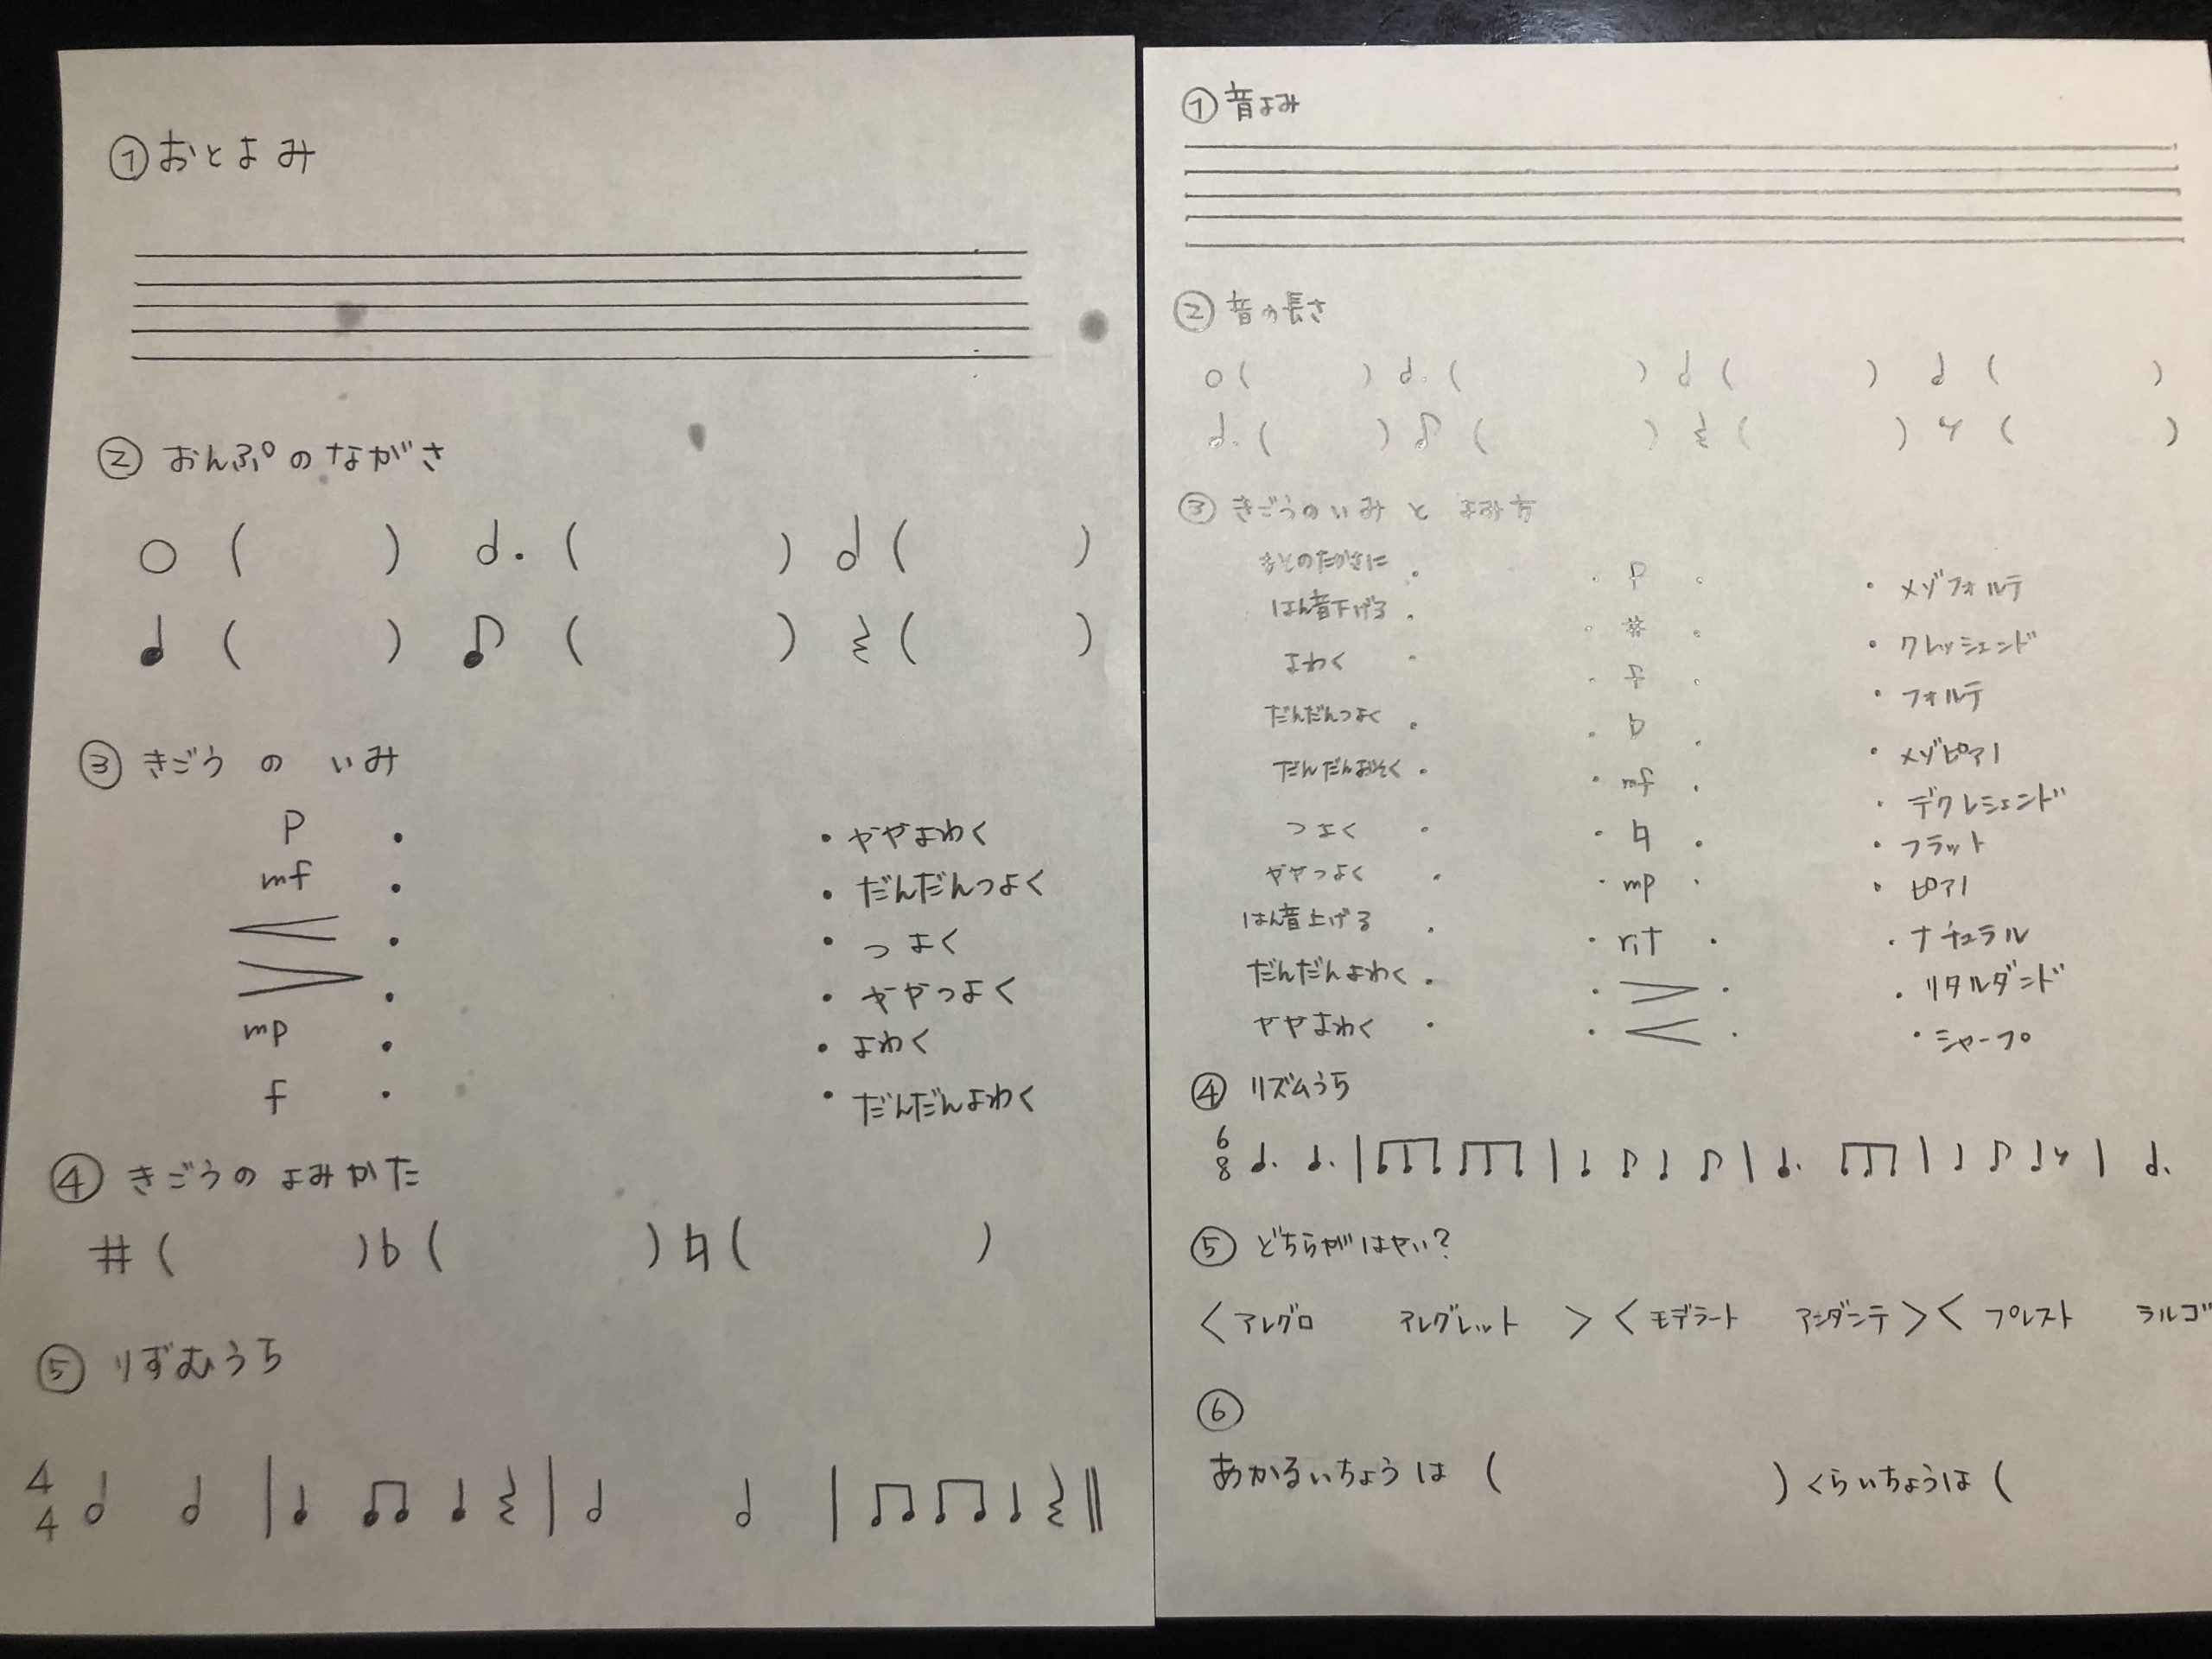 ①おとよみ
②おんぷのながさ
𝅝 ( ) 𝅗𝅥. ( ) 𝅗𝅥 ( )
♩ ( ) ♪ ( ) 𝄽 ( )
③きごうのいみ
p ・ ・ややよわく
mf ・ ・だんだんつよく
< ・ ・つよく
> ・ ・ややつよく
mp ・ ・よわく
f ・ ・だんだんよわく
④きごうのよみかた
# ( ) ♭ ( ) ♮ ( )
⑤りずむうち
4/4 𝅗𝅥 𝅗𝅥 | ♩ ♫ ♩ 𝄽 | 𝅗𝅥 𝅗𝅥 | ♫ ♫ ♩ 𝄽 ‖
①音よみ
②音の長さ
𝅝 ( ) 𝅗𝅥. ( ) 𝅗𝅥 ( ) ♩ ( )
♩. ( ) ♪ ( ) 𝄽 ( ) 𝄾 ( )
③きごうのいみとよみ方
もとのたかさに ・ ・ p ・ ・メゾフォルテ
はん音下げる ・ ・ # ・ ・クレッシェンド
よわく ・ ・ f ・ ・フォルテ
だんだんつよく ・ ・ ♭ ・ ・メゾピアノ
だんだんおそく ・ ・ mf ・ ・デクレシェンド
つよく ・ ・ ♮ ・ ・フラット
ややつよく ・ ・ mp ・ ・ピアノ
はん音上げる ・ ・ rit ・ ・ナチュラル
だんだんよわく ・ ・ > ・ ・リタルダンド
ややよわく ・ ・ < ・ ・シャープ
④リズムうち
6/8 ♩. ♩. | ♫♪ ♫♪ | ♩ ♪ ♩ ♪ | ♩. ♫♪ | ♩ ♪ ♩ 𝄾 | 𝅗𝅥.
⑤どちらがはやい?
<アレグロ アレグレット><モデラート アンダンテ><プレスト ラルゴ
⑥
あかるいちょうは ( ) くらいちょうは (